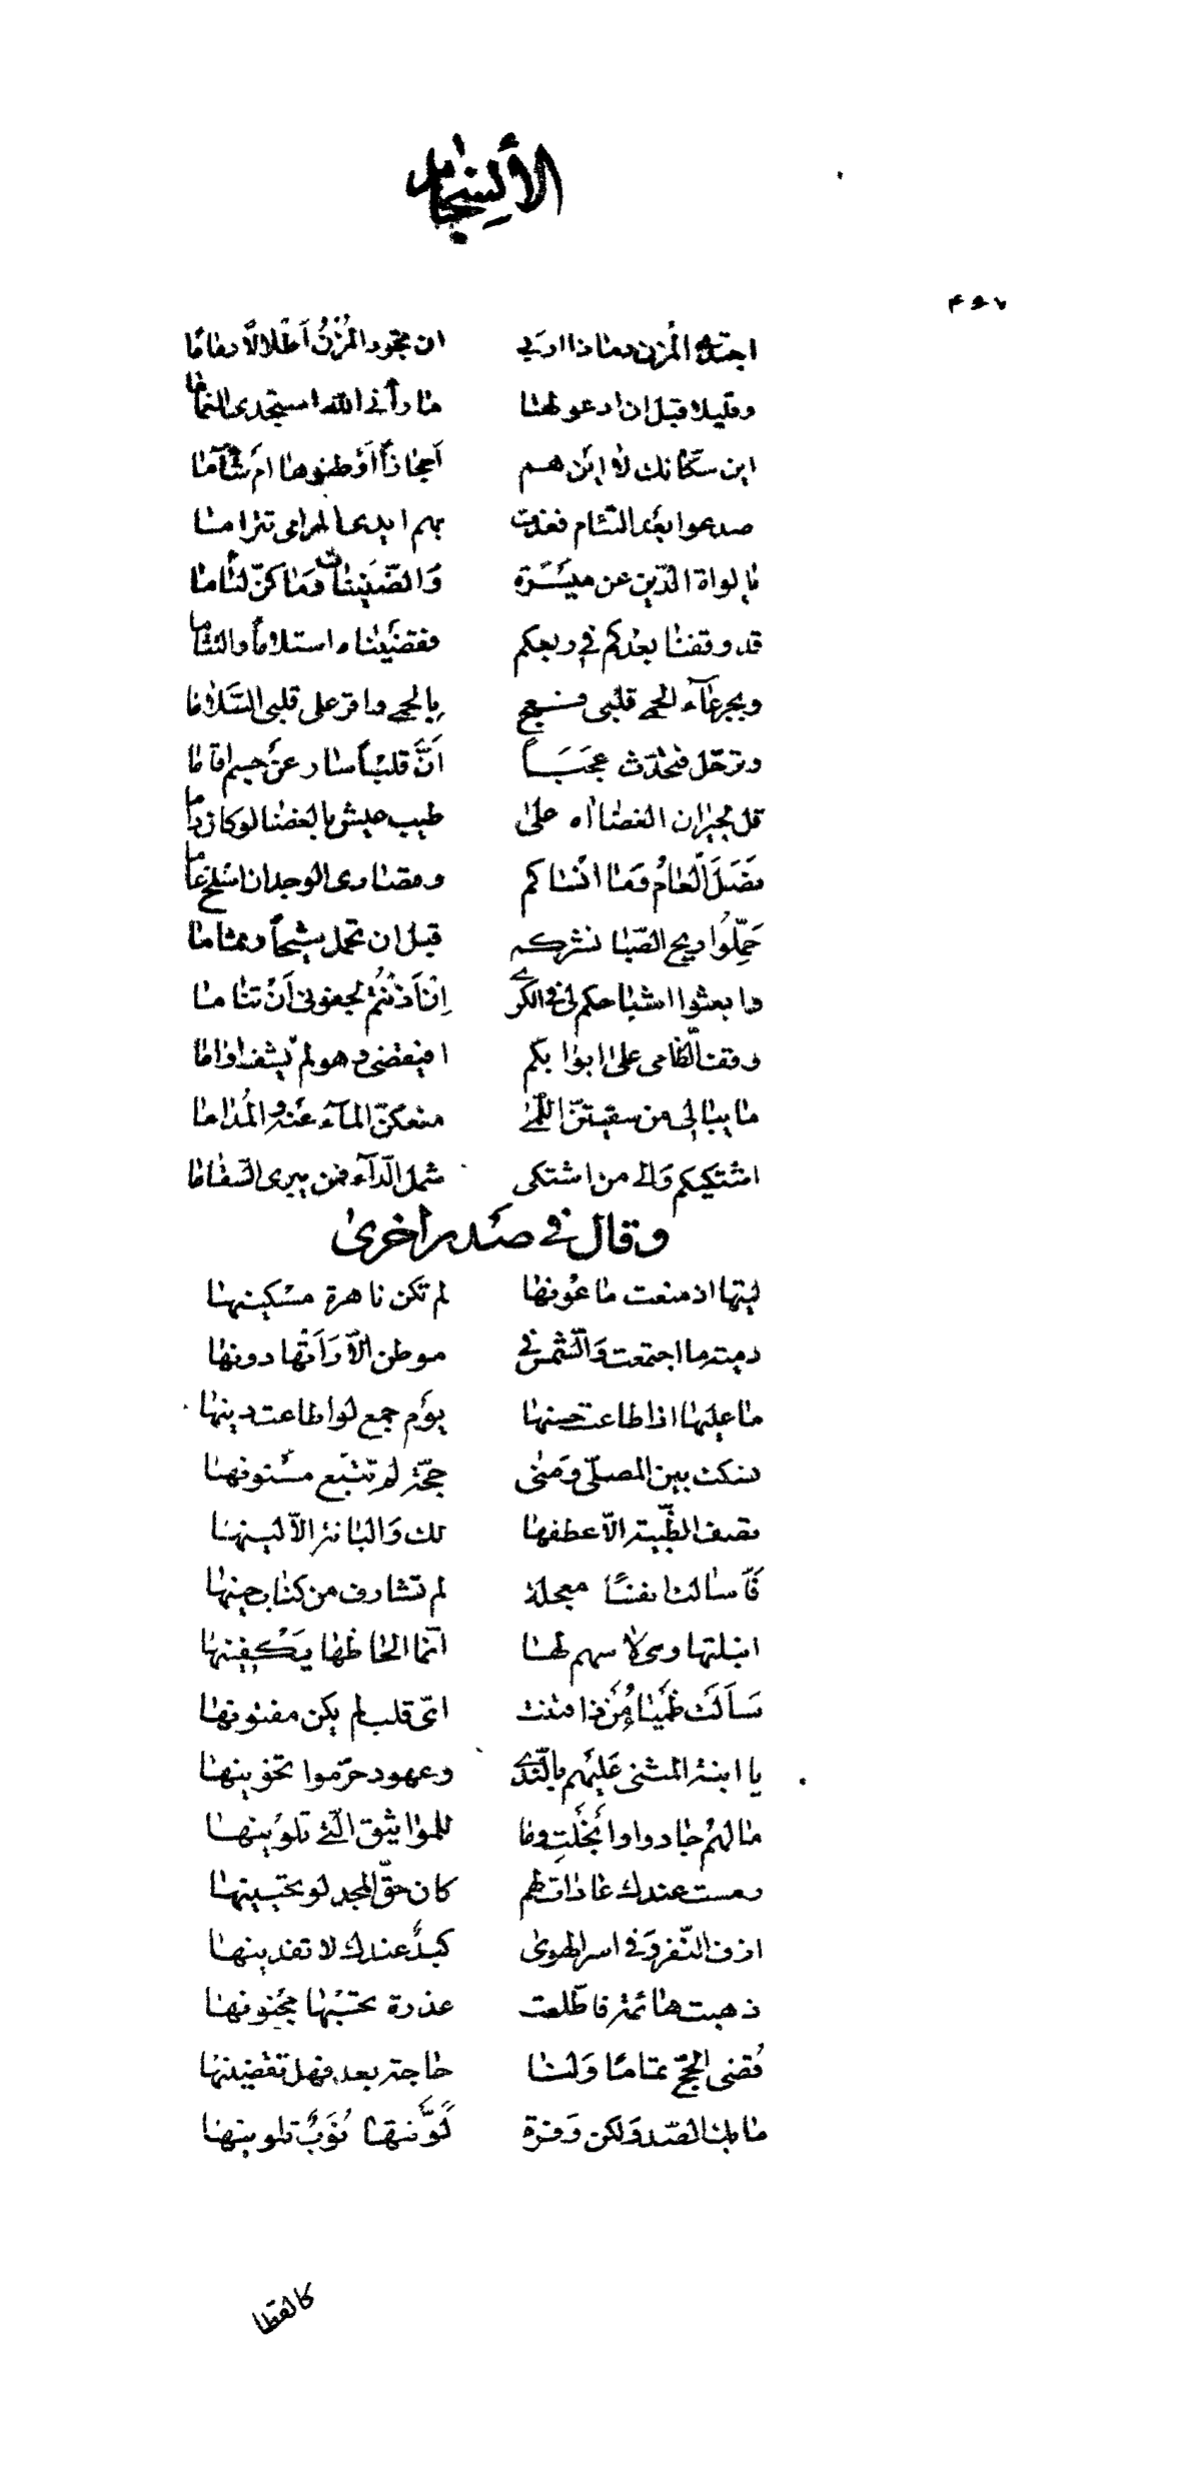 الأنسجام
٤٥٧
اجتدى المزن وماذا اربى ان تجود المزن أطلالا رماما
وقليلا قبل ان ادعو لها ما رأنى الله استجدى الغماما
اين سكانك لا اين هم أحجازا أوطنوها ام شآما
صدعوا بعد التئام فغدت بهم ايدى المرامى تترامى
يا لواة الدين عن ميسرة والضنينات وما كن لئاما
قد وقفنا بعدكم فى ربعكم فقضيناه استلاما والتثاما
وبجرعآء الحمى قلبى فعج بالحمى واقر على قلبى السلاما
وترحل فتحدث عجبا أن قلبا سار عن جسم اقاما
قل لجيران الغضا اه على طيب عيش بالغضا لو كان داما
فصل العام وما انساكم وقصارى الوجد ان اسلخ عاما
حملوا ريح الصبا نشركم قبل ان تحمل شيحا وثماما
وابعثوا اشباحكم لى فى الكرى إن أذنتم لجفونى أن تناما
وقف الظامى على ابوابكم افيقضى وهو لم يشف اواما
ما يبالى من سقيتن اللمى منعكن المآء عنه والمداما
اشتكيكم والى من اشتكى شمل الدآء فمن يبرى السقاما
وقال فى صدر اخرى
ليتها اذ منعت ماعونها لم تكن ناهرة مسكينها
دمية ما اجتمعت والشمس فى موطن الا رأتها دونها
ما عليها اذ اطاعت حسنها يوم جمع لو اطاعت دينها
نسكت بين المصلى ومنى حجة لم تتبع مسنونها
تصف الظبية الا عطفها لك والبانة الا لينها
فأسالت نفسا معجلة لم تشارف من كتاب حينها
انبلتها وهى لا سهم لها انما الحاظها يكفينها
سألت ظمياء من ذا فتنت اى قلب لم يكن مفتونها
يا ابنة المثنى عليهم بالندى وعهود حرموا تخوينها
ما لهم جادوا وانجلت وما للمواثيق التى تلوينها
درست عندك عادات لهم كان حق المجد لو تحيينها
ازف النفر وفى اسر الهوى كبد عندك لا تفدينها
ذهبت هائمة فاطلعت عذرة تحسبها مجنونها
قضى الحج تماما ولنا حاجة بعد فهل تقضينها
ما بنا الصد ولكن وفرة لونتها نوب تلوينها
كالقطا